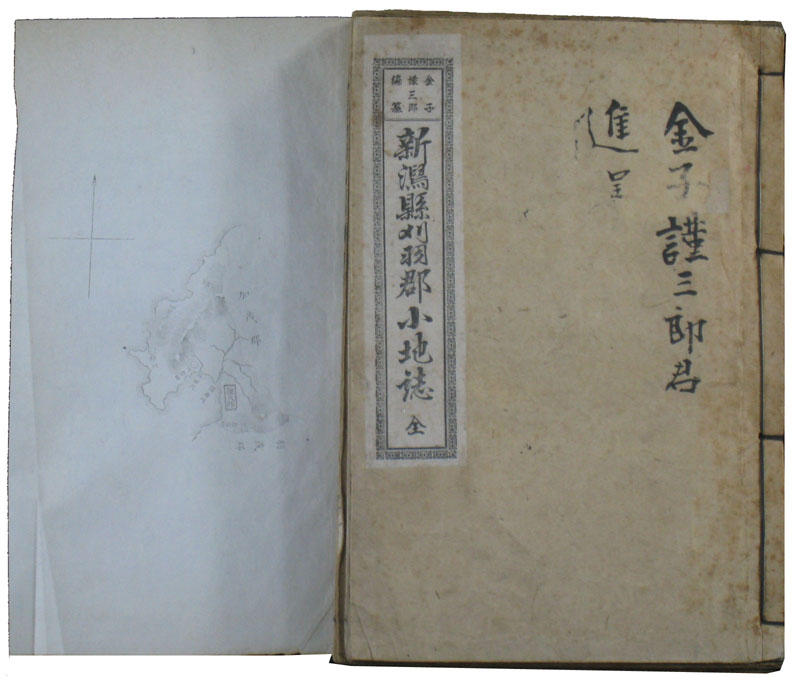 金子謹三郎君
進呈
金子
三郎
編纂
新潟縣刈羽郡小地誌 全
加茂郡